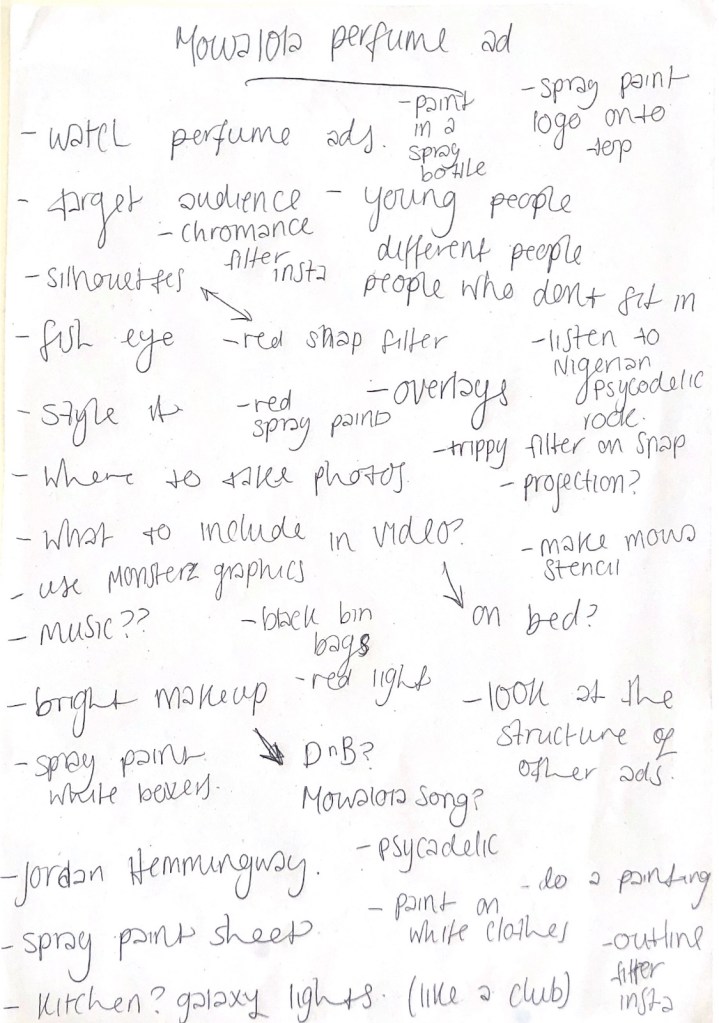 Mowalola perfume ad
- watch perfume ads.
- paint
in a
spray
bottle
- spray paint
logo onto
top
- target audience - young people
different people
people who dont fit in
- chromance
filter insta
- silhouettes
- fish eye
- red snap filter
- listen to
Nigerian
psycodelic
rock.
- style it
- red
spray paint
- overlays
- trippy filter on snap
- where to take photos
- projection?
- what to include in video?
on bed?
- make mowa
stencil
- use Monsterz graphics
- MUSIC??
- black bin
bags
- red light
- bright makeup
- look at the
structure of
other ads.
- spray paint
white boxers.
DnB?
Mowalola song?
- Jordan Hemmingway.
- psycadelic
- do a painting
- paint on
white clothes
- spray paint sheet
- outline
filter
insta
- kitchen? galaxy lights. (like a club)